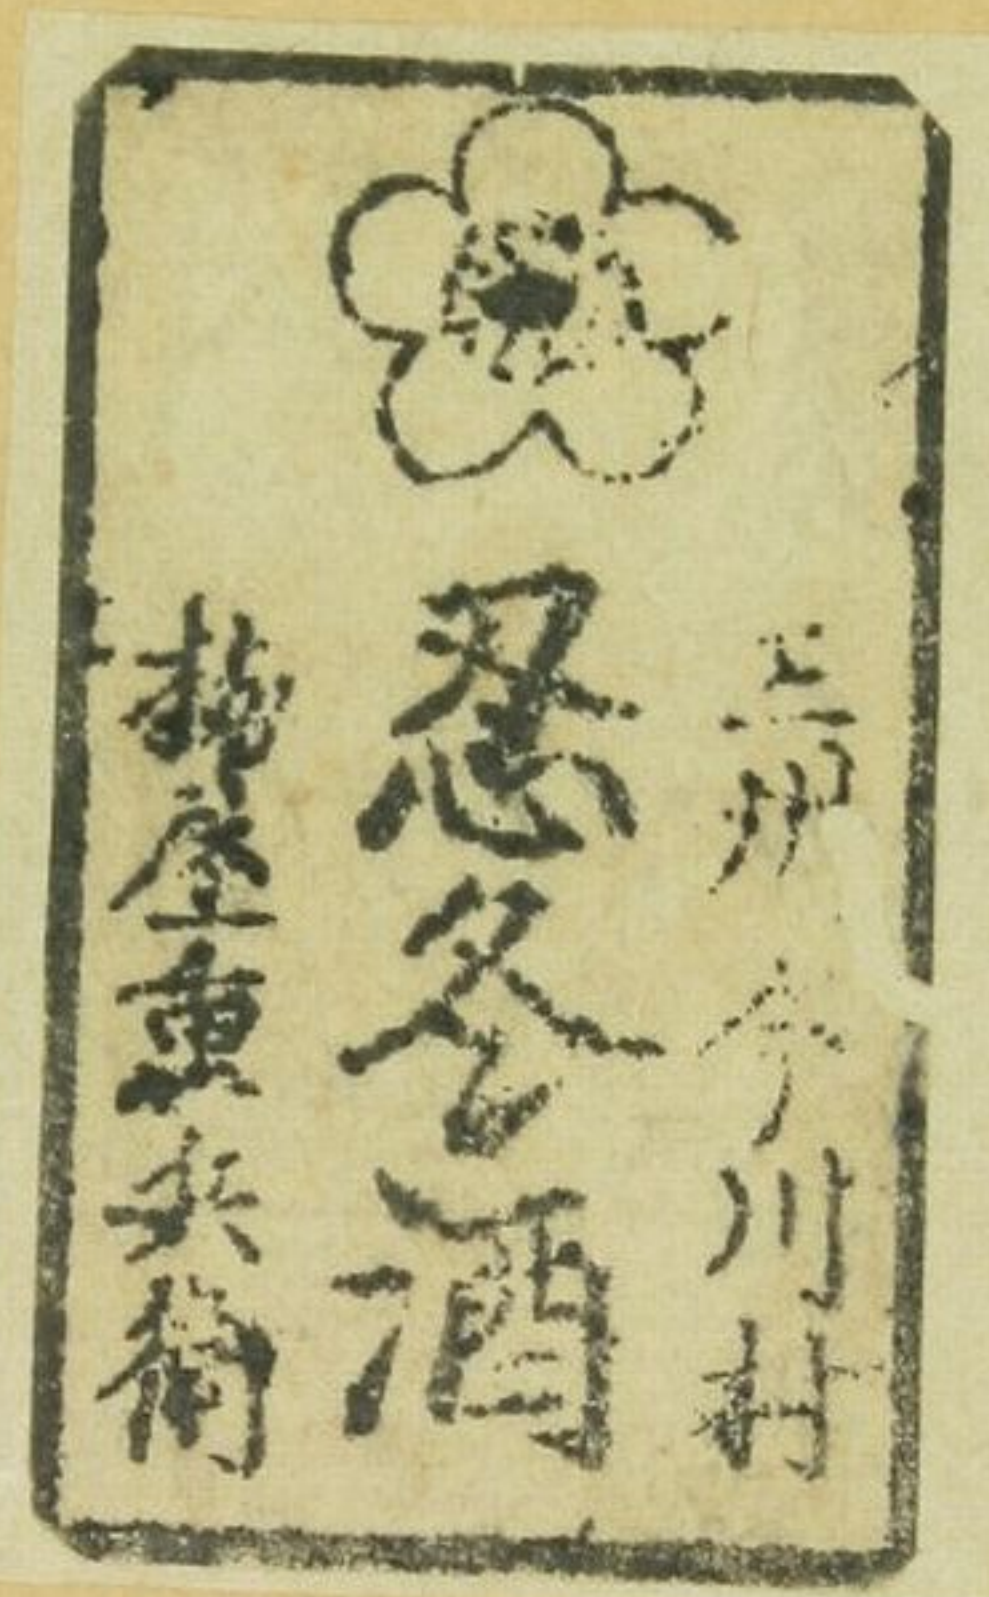 三州今川村
忍冬酒
屋重兵衛